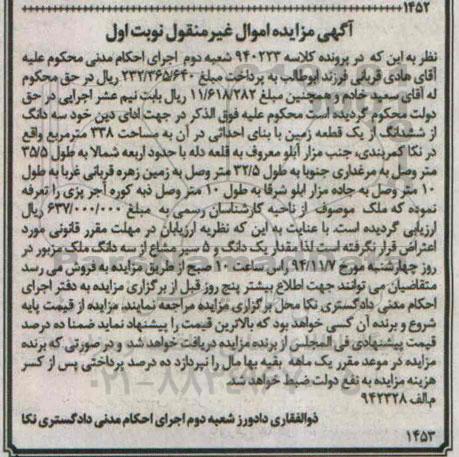 ۱۴۵۲
آگهی مزایده اموال غیر منقول نوبت اول
نظر به این که در پرونده کلاسه ۹۴۰۲۲۳ شعبه دوم اجرای احکام مدنی محکوم علیه
آقای هادی قربانی فرزند ابوطالب به پرداخت مبلغ ۲۳۲/۳۶۵/۶۴۰ ریال در حق محکوم
له آقای سعید خادم و همچنین مبلغ ۱۱/۶۱۸/۲۸۲ ریال بابت نیم عشر اجرایی در حق
دولت محکوم گردیده است محکوم علیه فوق الذکر در جهت ادای دین خود سه دانگ
از ششدانگ از یک قطعه زمین با بنای احداثی در آن به مساحت ۳۳۸ مترمربع واقع
در نکا کمربندی، جنب مزار آبلو معروف به قلعه دله با حدود اربعه شمالا به طول ۳۵/۵
متر وصل به مرغداری جنوبا به طول ۳۲/۵ متر وصل به زمین زهره قربانی غربا به طول
۱۰ متر وصل به جاده مزار ابلو شرقا به طول ۱۰ متر وصل ذبه کوره آجر پزی را تعرفه
نموده که ملک موصوف از ناحیه کارشناسان رسمی به مبلغ ۶۳۷/۰۰۰/۰۰۰ ریال
ارزیابی گردیده است. با عنایت به این که نظریه ارزیابان در مهلت مقرر قانونی مورد
اعتراض قرار نگرفته است لذا مقدار یک دانگ و ۵ سیر مشاع از سه دانگ ملک مزبور در
روز چهارشنبه مورخ ۹۴/۱۱/۷ راس ساعت ۱۰ صبح از طریق مزایده به فروش می رسد
متقاضیان می توانند جهت اطلاع بیشتر پنج روز قبل از برگزاری مزایده به دفتر اجرای
احکام مدنی دادگستری نکا محل برگزاری مزایده مراجعه نمایند. مزایده از قیمت پایه
شروع و برنده آن کسی خواهد بود که بالاترین قیمت را پیشنهاد نماید ضمنا ده درصد
قیمت پیشنهادی فی المجلس از برنده مزایده دریافت خواهد شد و در صورتی که برنده
مزایده در موعد مقرر یک ماهه بقیه بها مال را نپردازد ده درصد پرداختی پس از کسر
هزینه مزایده به نفع دولت ضبط خواهد شد
م.الف ۹۴۲۳۲۸
ذوالفقاری دادورز شعبه دوم اجرای احکام مدنی دادگستری نکا
۱۴۵۳